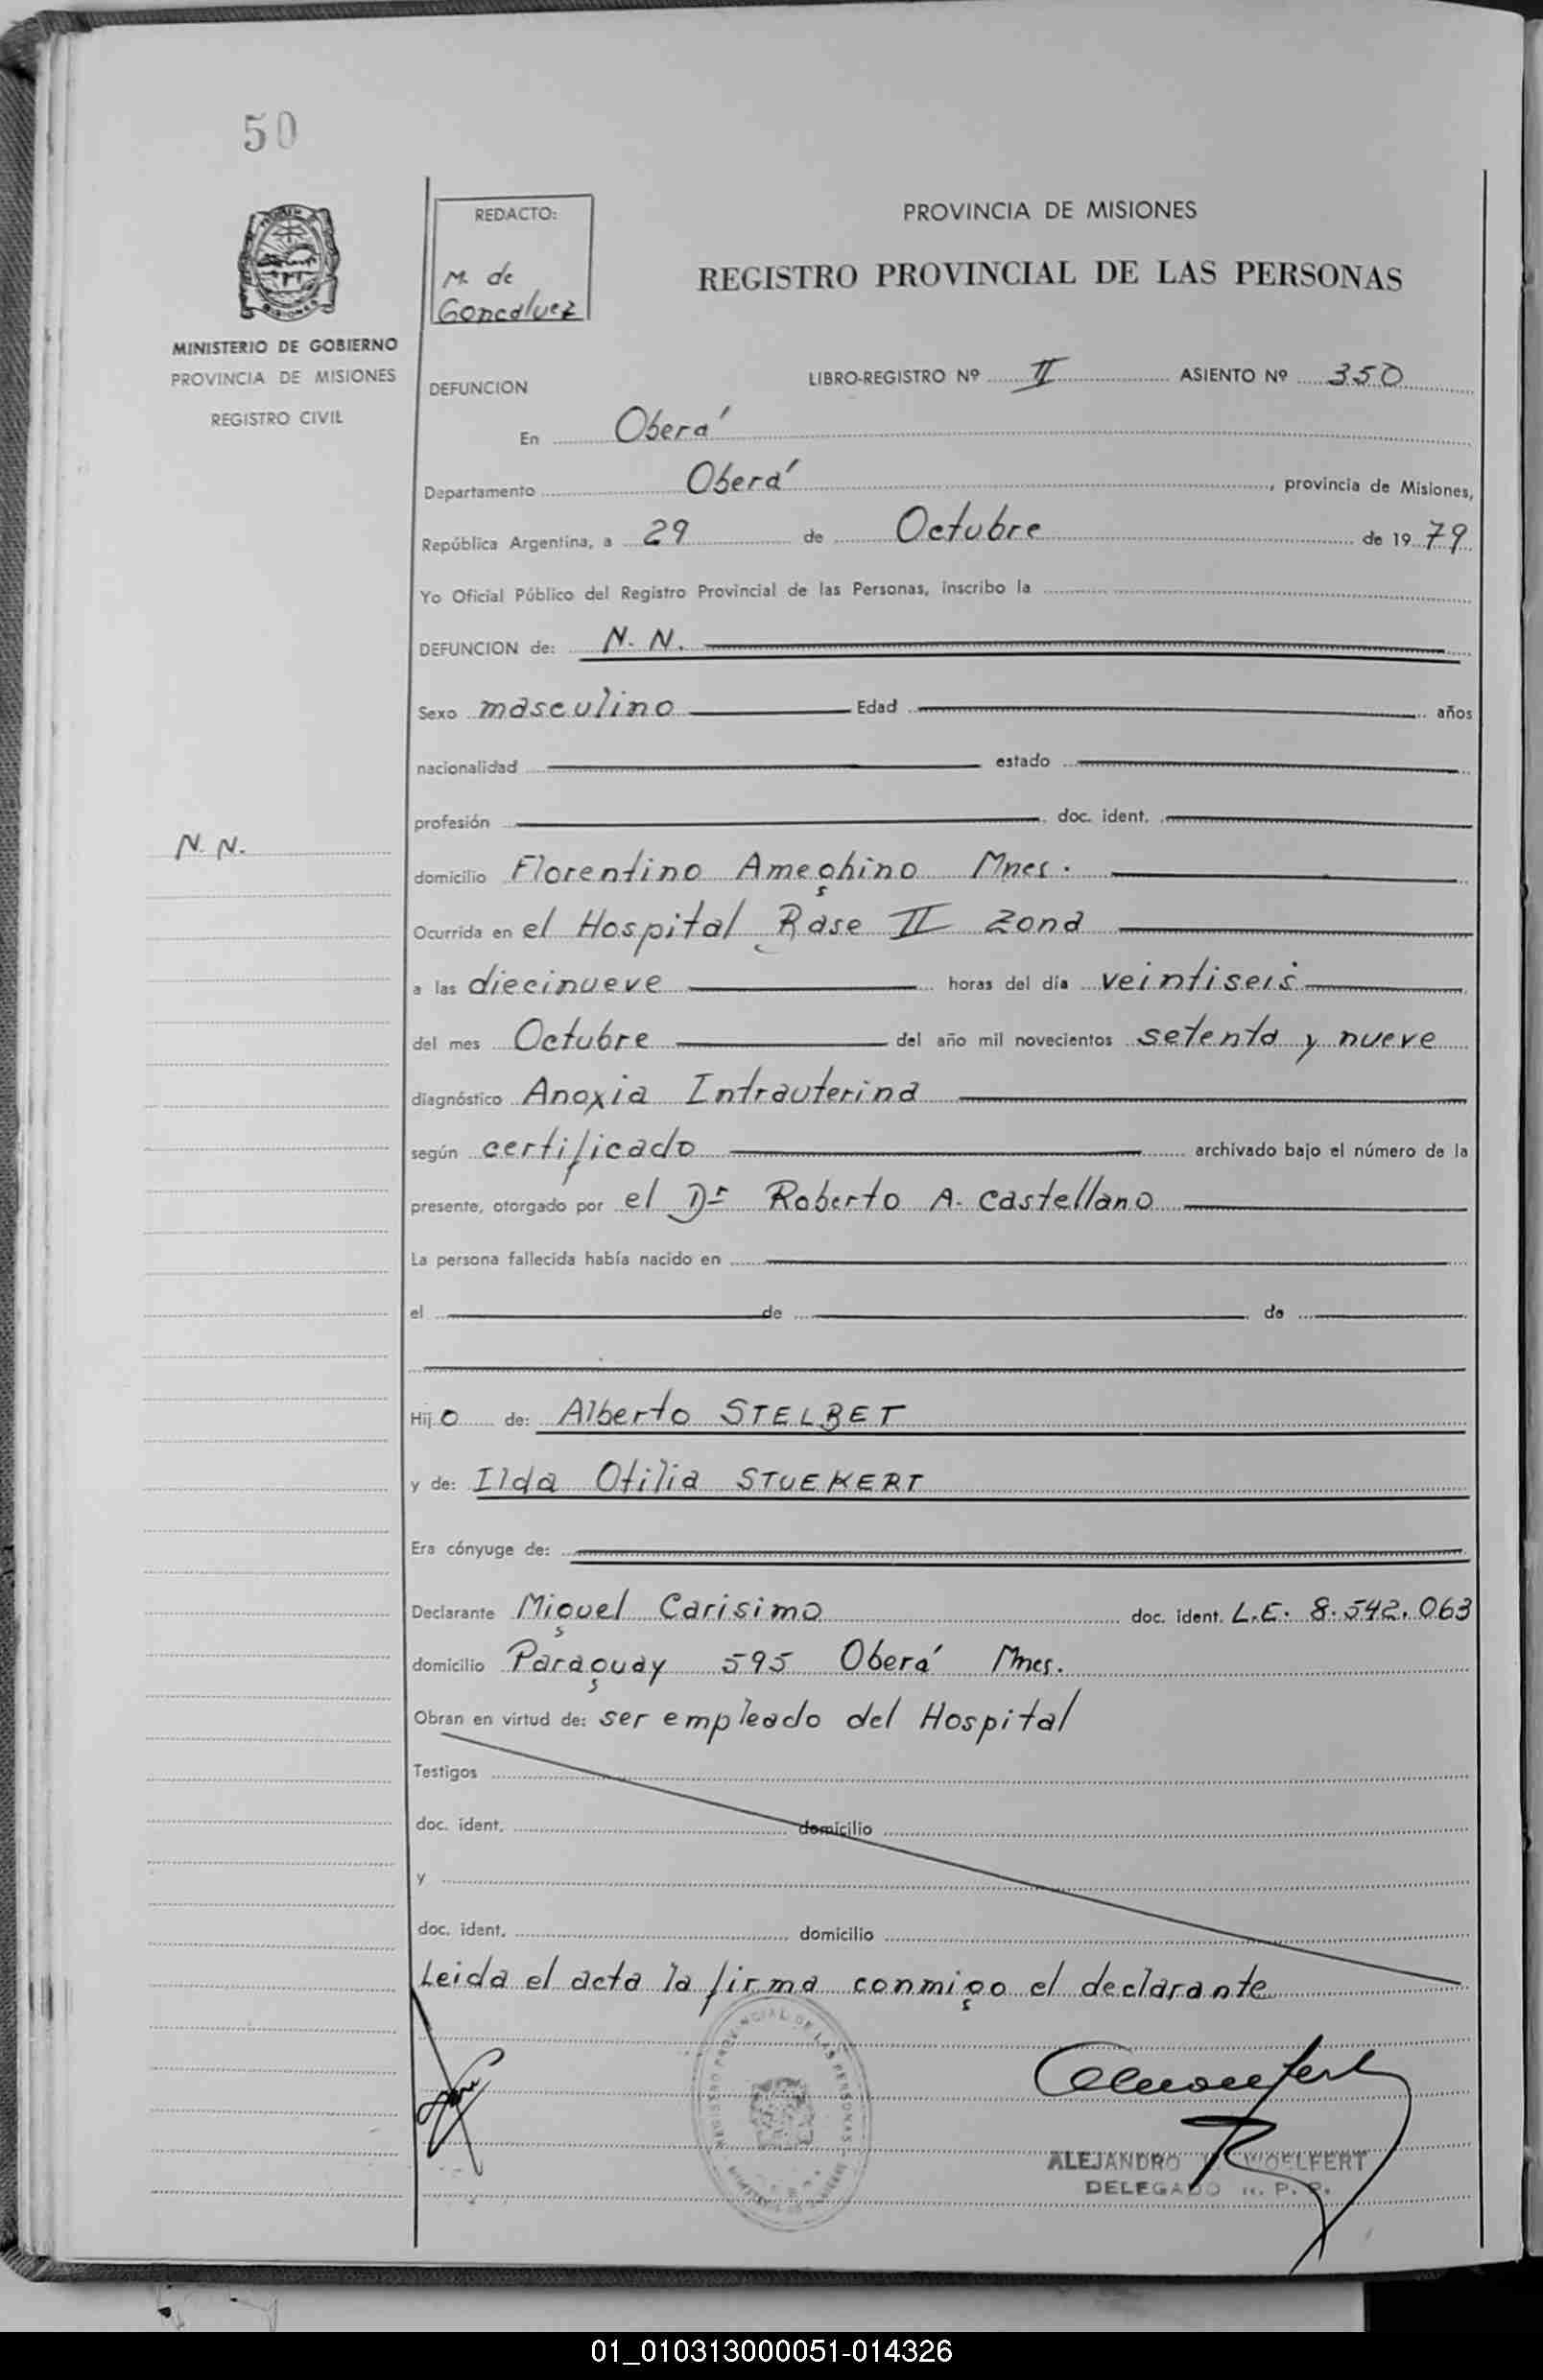 50
REDACTO:
M. de
Goncalvez
MINISTERIO DE GOBIERNO
PROVINCIA DE MISIONES
REGISTRO CIVIL
PROVINCIA DE MISIONES
REGISTRO PROVINCIAL DE LAS PERSONAS
DEFUNCION LIBRO-REGISTRO Nº II ASIENTO Nº 350
En Oberá
Departamento Oberá, provincia de Misiones,
República Argentina, a 29 de Octubre de 1979
Yo Oficial Público del Registro Provincial de las Personas, inscribo la
DEFUNCION de: N. N.
Sexo masculino Edad años
nacionalidad estado
profesión doc. ident.
N. N.
domicilio Florentino Ameghino Mnes.
Ocurrida en el Hospital Base II Zona
a las diecinueve horas del día veintiseis
del mes Octubre del año mil novecientos setenta y nueve
diagnóstico Anoxia Intrauterina
según certificado archivado bajo el número de la
presente, otorgado por el Dr Roberto A. Castellano
La persona fallecida había nacido en
el de de
Hijo de: Alberto STELBET
y de: Ilda Otilia STUEKERT
Era cónyuge de:
Declarante Miguel Carisimo doc. ident. L.E. 8.542.063
domicilio Paraguay 595 Oberá Mnes.
Obran en virtud de: ser empleado del Hospital
Testigos
doc. ident. domicilio
y
doc. ident. domicilio
Leida el acta la firma conmigo el declarante
REGISTRO PROVINCIAL DE LAS PERSONAS
ALEJANDRO WOELFERT
DELEGADO R. P. P.
01_010313000051-014326